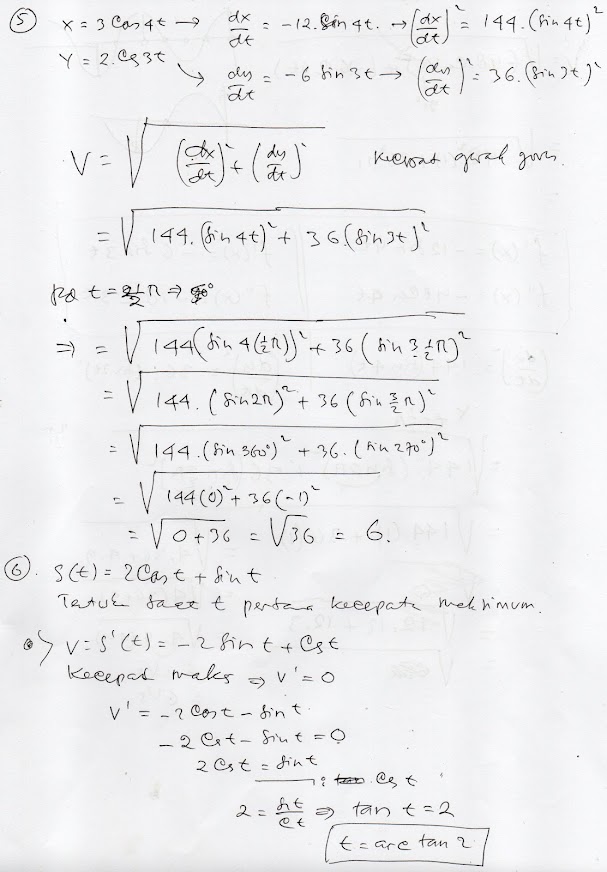 ⑤ x = 3 Cos 4t → dx/dt = -12. Sin 4t. → (dx/dt)² = 144. (Sin 4t)²
Y = 2. Cos 3t ↘ dy/dt = -6 Sin 3t → (dy/dt)² = 36. (Sin 3t)²
V = √((dx/dt)² + (dy/dt)²) gerak
= √(144. (Sin 4t)² + 36 (Sin 3t)²)
t = ½π ⇒ 90°
⇒ = √(144 (Sin 4 (½π))² + 36 (Sin 3 ½π)²)
= √(144. (Sin 2π)² + 36 (Sin 3/2 π)²)
= √(144. (Sin 360°)² + 36. (Sin 270°)²)
= √(144 (0)² + 36 (-1)²)
= √(0 + 36) = √36 = 6.
⑥. S(t) = 2 Cos t + Sin t
saat t pertama kecepatan maksimum.
V = S'(t) = -2 Sin t + Cos t
Kecepat maks ⇒ V' = 0
V' = -2 Cos t - Sin t
-2 Cos t - Sin t = 0
2 Cos t = Sin t
: Cos t
2 = Sin t / Cos t ⇒ tan t = 2
t = arc tan 2